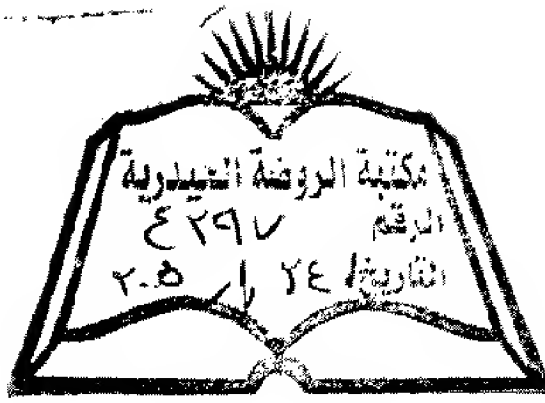 مكتبة الروضة الحيدرية
الرقم ٤٢٩٧
التاريخ / ٢٤ / ٢٠٠٥